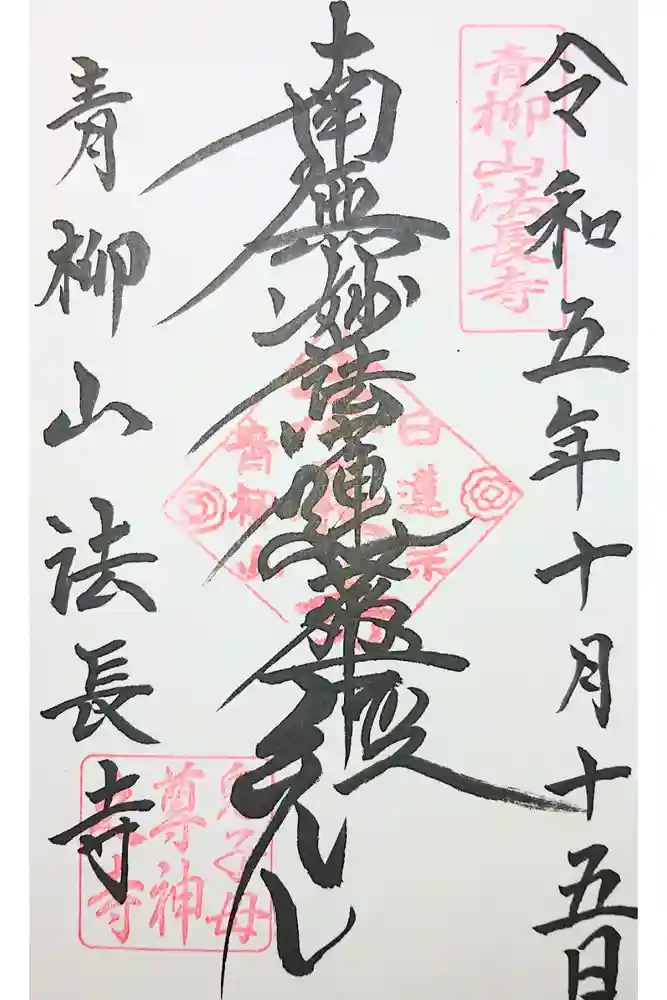 令和五年十月十五日
青柳山法長寺
南無妙法蓮華経
日蓮宗
青柳山
青柳山法長寺
鬼子母
尊神
法長寺